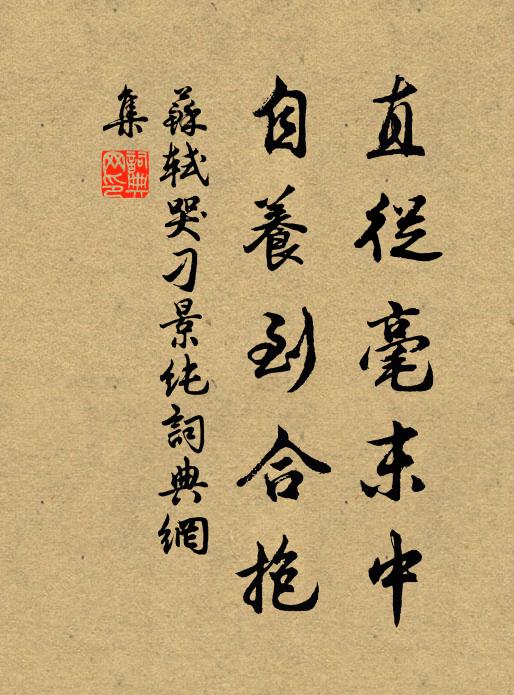 直從毫末中
自養到合抱
蘇軾哭刁景純詞典網
集
詞典
网印